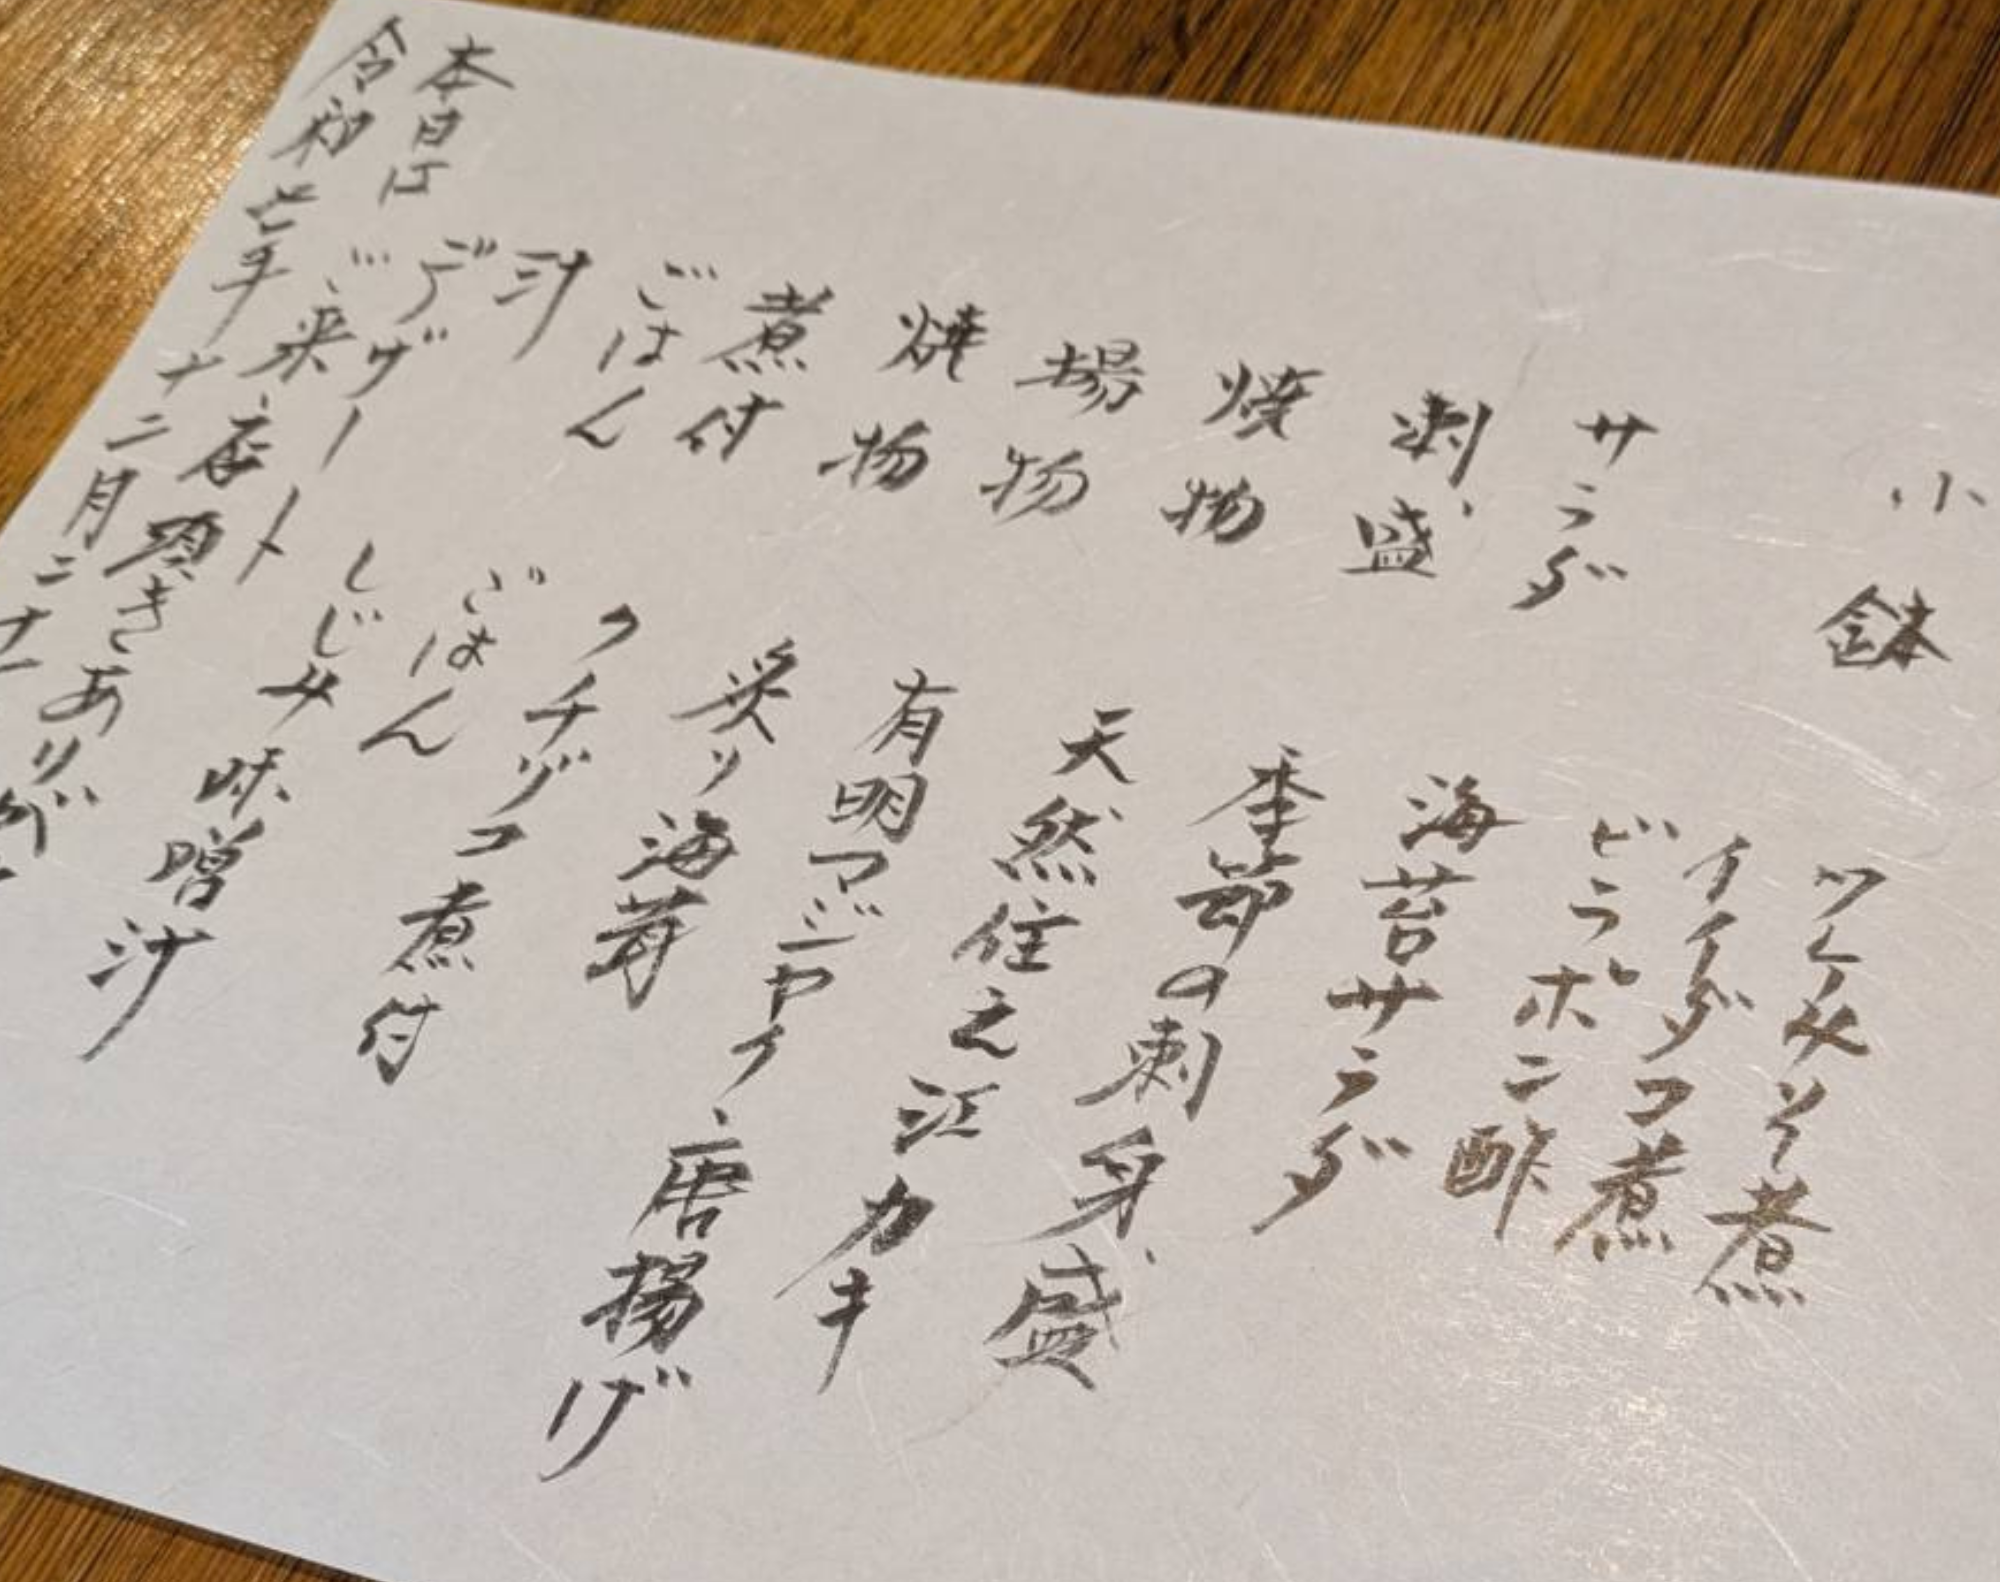 小鉢 ツレみそ煮
イイダコ煮
ビラポン酢
サラダ 海苔サラダ
刺盛 季節の刺身盛
焼物 天然住之江カキ
揚物 有明マジャク唐揚げ
焼物 炙り海茸
煮付 クチゾコ煮付
ごはん ごはん
汁 しじみ味噌汁
デザート
本日はご来店頂きあり
令和七年十二月二十